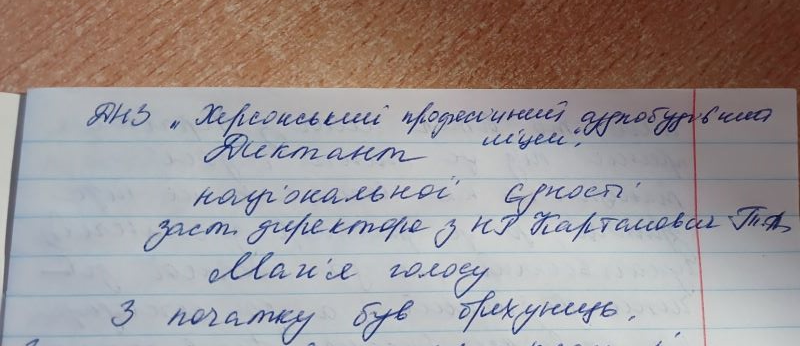 ДНЗ „Херсонський професійний суднобудівний
ліцей".
Диктант
національної єдності
заст. директора з НР Картамович Т.А.
Магія голосу
З початку був брехунець.